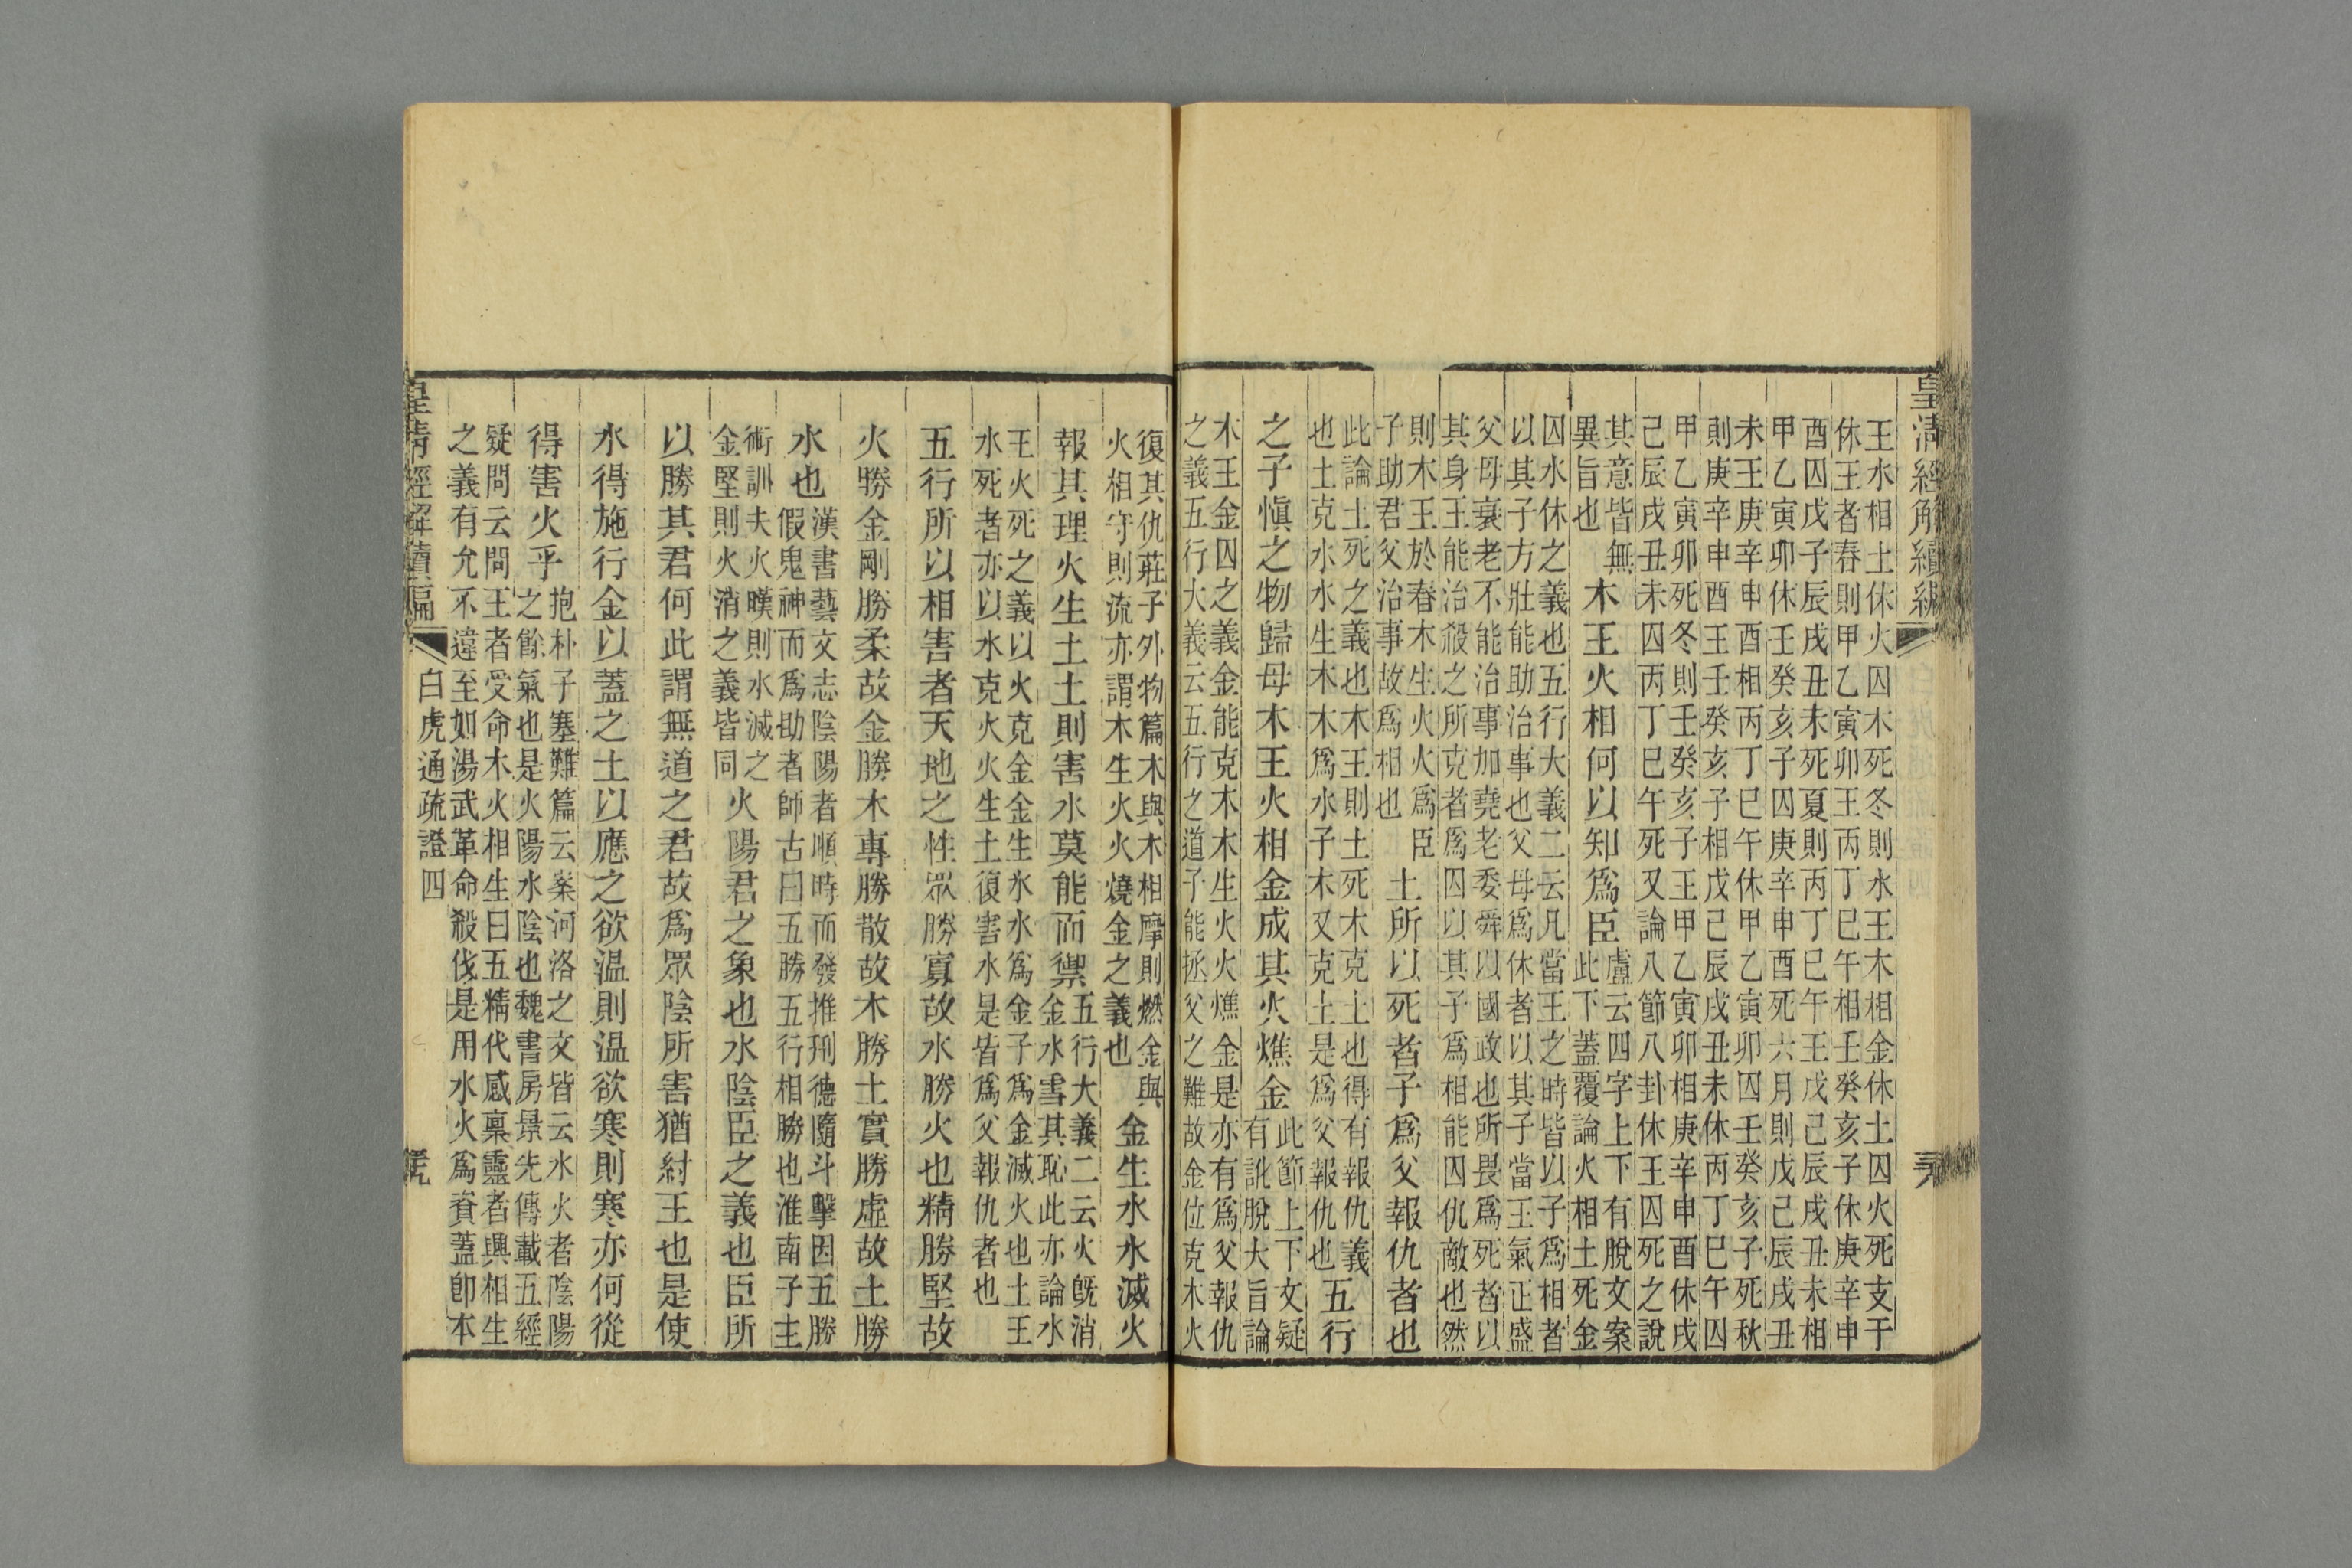 皇淸經解續編
王水相土休火囚木死冬則水王木相金休土囚火死支干
休王者春則甲乙寅卯王丙丁巳午相壬癸亥子休庚辛申
酉囚戊子辰戌丑未死夏則丙丁巳午王戊己辰戌丑未相
甲乙寅卯休壬癸亥子囚庚辛申酉死六月則戊己辰戌丑
未王庚辛申酉相丙丁巳午休甲乙寅卯囚壬癸亥子死秋
則庚辛申酉王壬癸亥子相戊己辰戌丑未休丙丁巳午囚
甲乙寅卯死冬則壬癸亥子王甲乙寅卯相庚辛申酉休戌
己辰戌丑未囚丙丁巳午死又論八節八卦休王囚死之說
其意皆無
異旨也
木王火相何以知爲臣
盧云四字上下有脫文案
此下蓋覆論火相土死金
囚水休之義也五行大義二云凡當王之時皆以子爲相者
以其子方壯能助治事也父母爲休者以其子當王氣正盛
父母衰老不能治事加堯老委舜以國政也所畏爲死者以
其身王能治殺之所克者爲囚以其子爲相能囚仇敵也然
則木王於春木生火火爲臣
子助君父治事故爲相也
土所以死者子爲父報仇者也
此論土死之義也木王則土死木克土土也得有報仇義
也土克水水生木木爲水子木又克土是爲父報仇也
五行
之子慎之物歸母木王火相金成其火燋金
此節上下文疑
有訛脫大旨論
木王金囚之義金能克木木生火火燋金是亦有爲父報仇
之義五行大義云五行之道子能拯父之難故金位克木火
復其仇莊子外物篇木與木相摩則燃金與
火相守則流亦謂木生火火燒金之義也
金生水水滅火
報其理火生土土則害水莫能而禦
五行大義二云火旣消
金水雪其恥此亦論水
王火死之義以火克金金生水水爲金子爲金滅火也土王
水死者亦以水克火火生土復害水是皆爲父報仇者也
五行所以相害者天地之性眾勝寡故水勝火也精勝堅故
火勝金剛勝柔故金勝木專勝散故木勝土實勝虛故土勝
水也
漢書藝文志陰陽者順時而發推刑德隨斗擊因五勝
假鬼神而爲助者師古曰五勝五行相勝也淮南子主
術訓夫火熯則水滅之
金堅則火消之義皆同
火陽君之象也水陰臣之義也臣所
以勝其君何此謂無道之君故爲眾陰所害猶紂王也是使
水得施行金以蓋之土以應之欲温則温欲寒則寒亦何從
得害火乎
抱朴子塞難篇云案河洛之文皆云水火者陰陽
之餘氣也是火陽水陰也魏書房景先傳載五經
疑問云問王者受命木火相生曰五精代感稟靈者興相生
之義有允不違至如湯武革命殺伐是用水火爲資蓋卽本
皇淸經解續編
白虎通疏證四